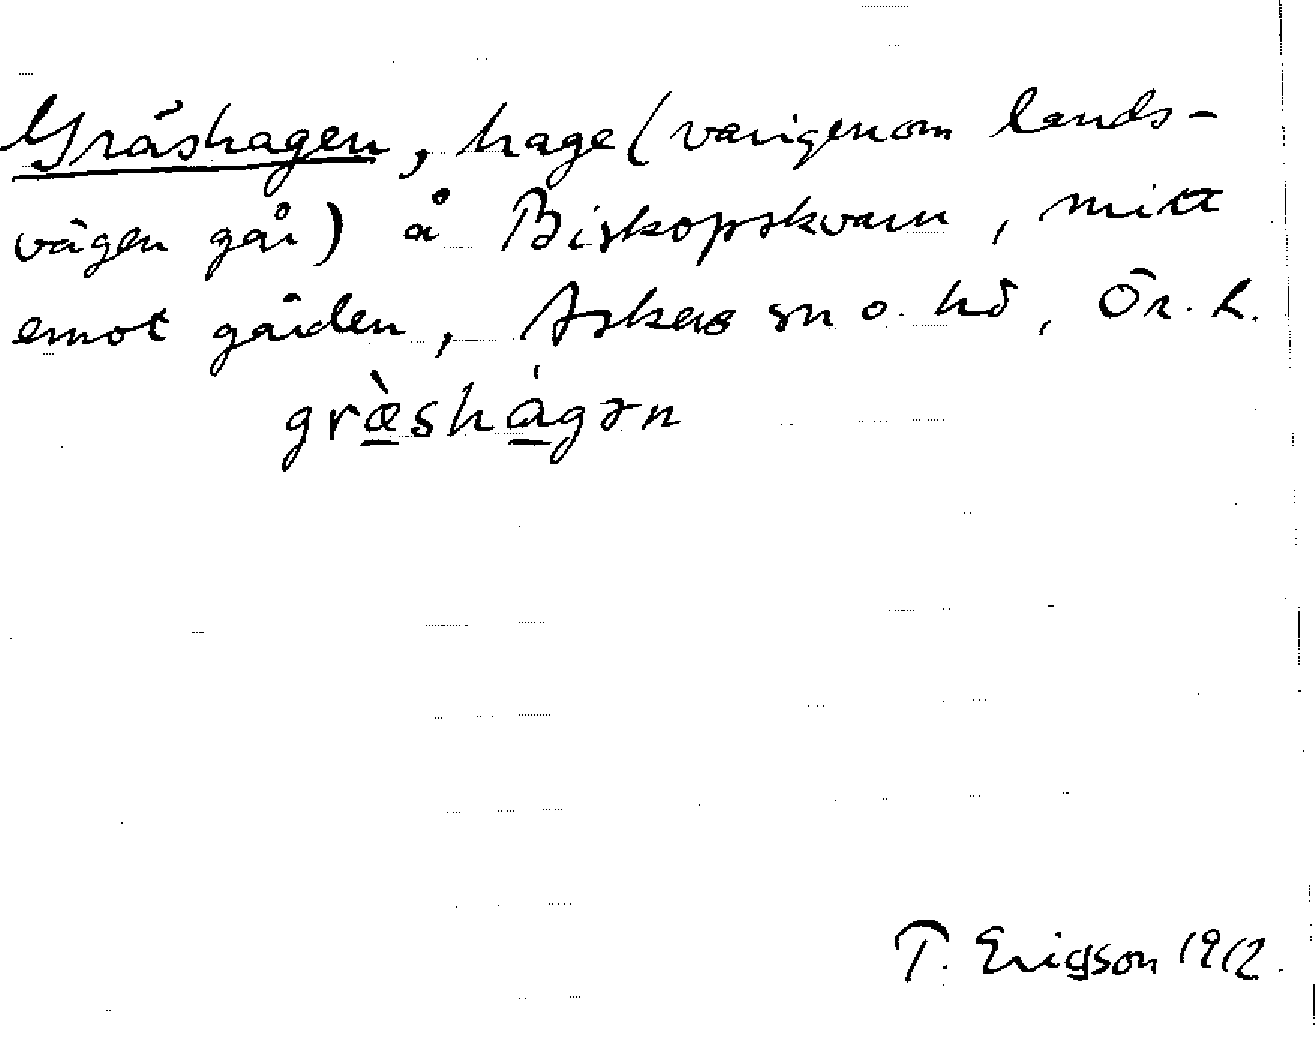 Gräshagen, hage (varigenom lands-
vägen går) å Biskopskvarn, mitt
emot gården, Askers sn o. hd, Ör. l.
græ̀shágən
T. Ericsson 1912.